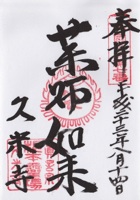 奉拝
平成二十三年八月十四日
薬師如来
久米寺